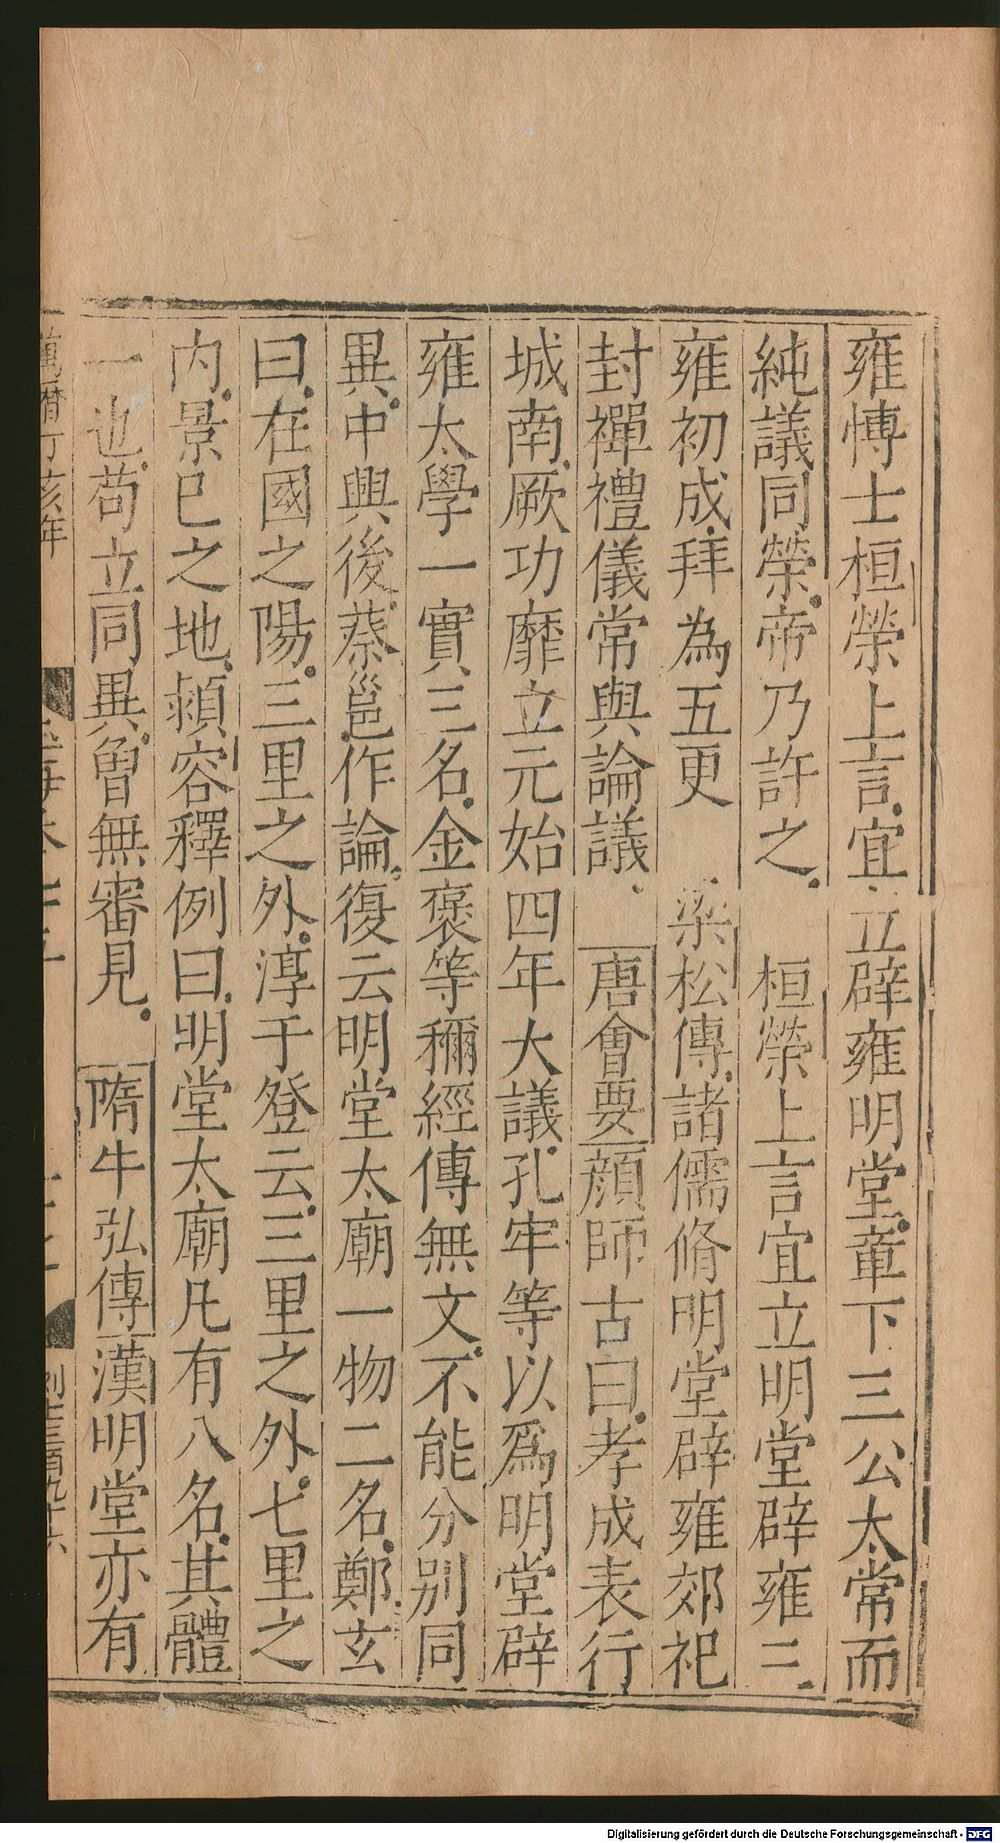 雍博士桓榮上言宜立辟雍明堂章下三公太常而
純議同榮帝乃許之　桓榮上言宜立明堂辟雍二
雍初成拜為五更　梁松傳諸儒脩明堂辟雍郊祀
封禪禮儀常與論議　唐會要顔師古曰孝成表行
城南厥功靡立元始四年大議孔牢等以爲明堂辟
雍太學一實三名金褒等稱經傳無文不能分別同
異中興後蔡邕作論復云明堂太廟一物二名鄭玄
曰在國之陽三里之外淳于登云三里之外七里之
内景巳之地頴容釋例曰明堂太廟凡有八名其體
一也苟立同異曾無審見　隋牛弘傳漢明堂亦有
萬曆丁亥年
Digitalisierung gefördert durch die Deutsche Forschungsgemeinschaft - DFG